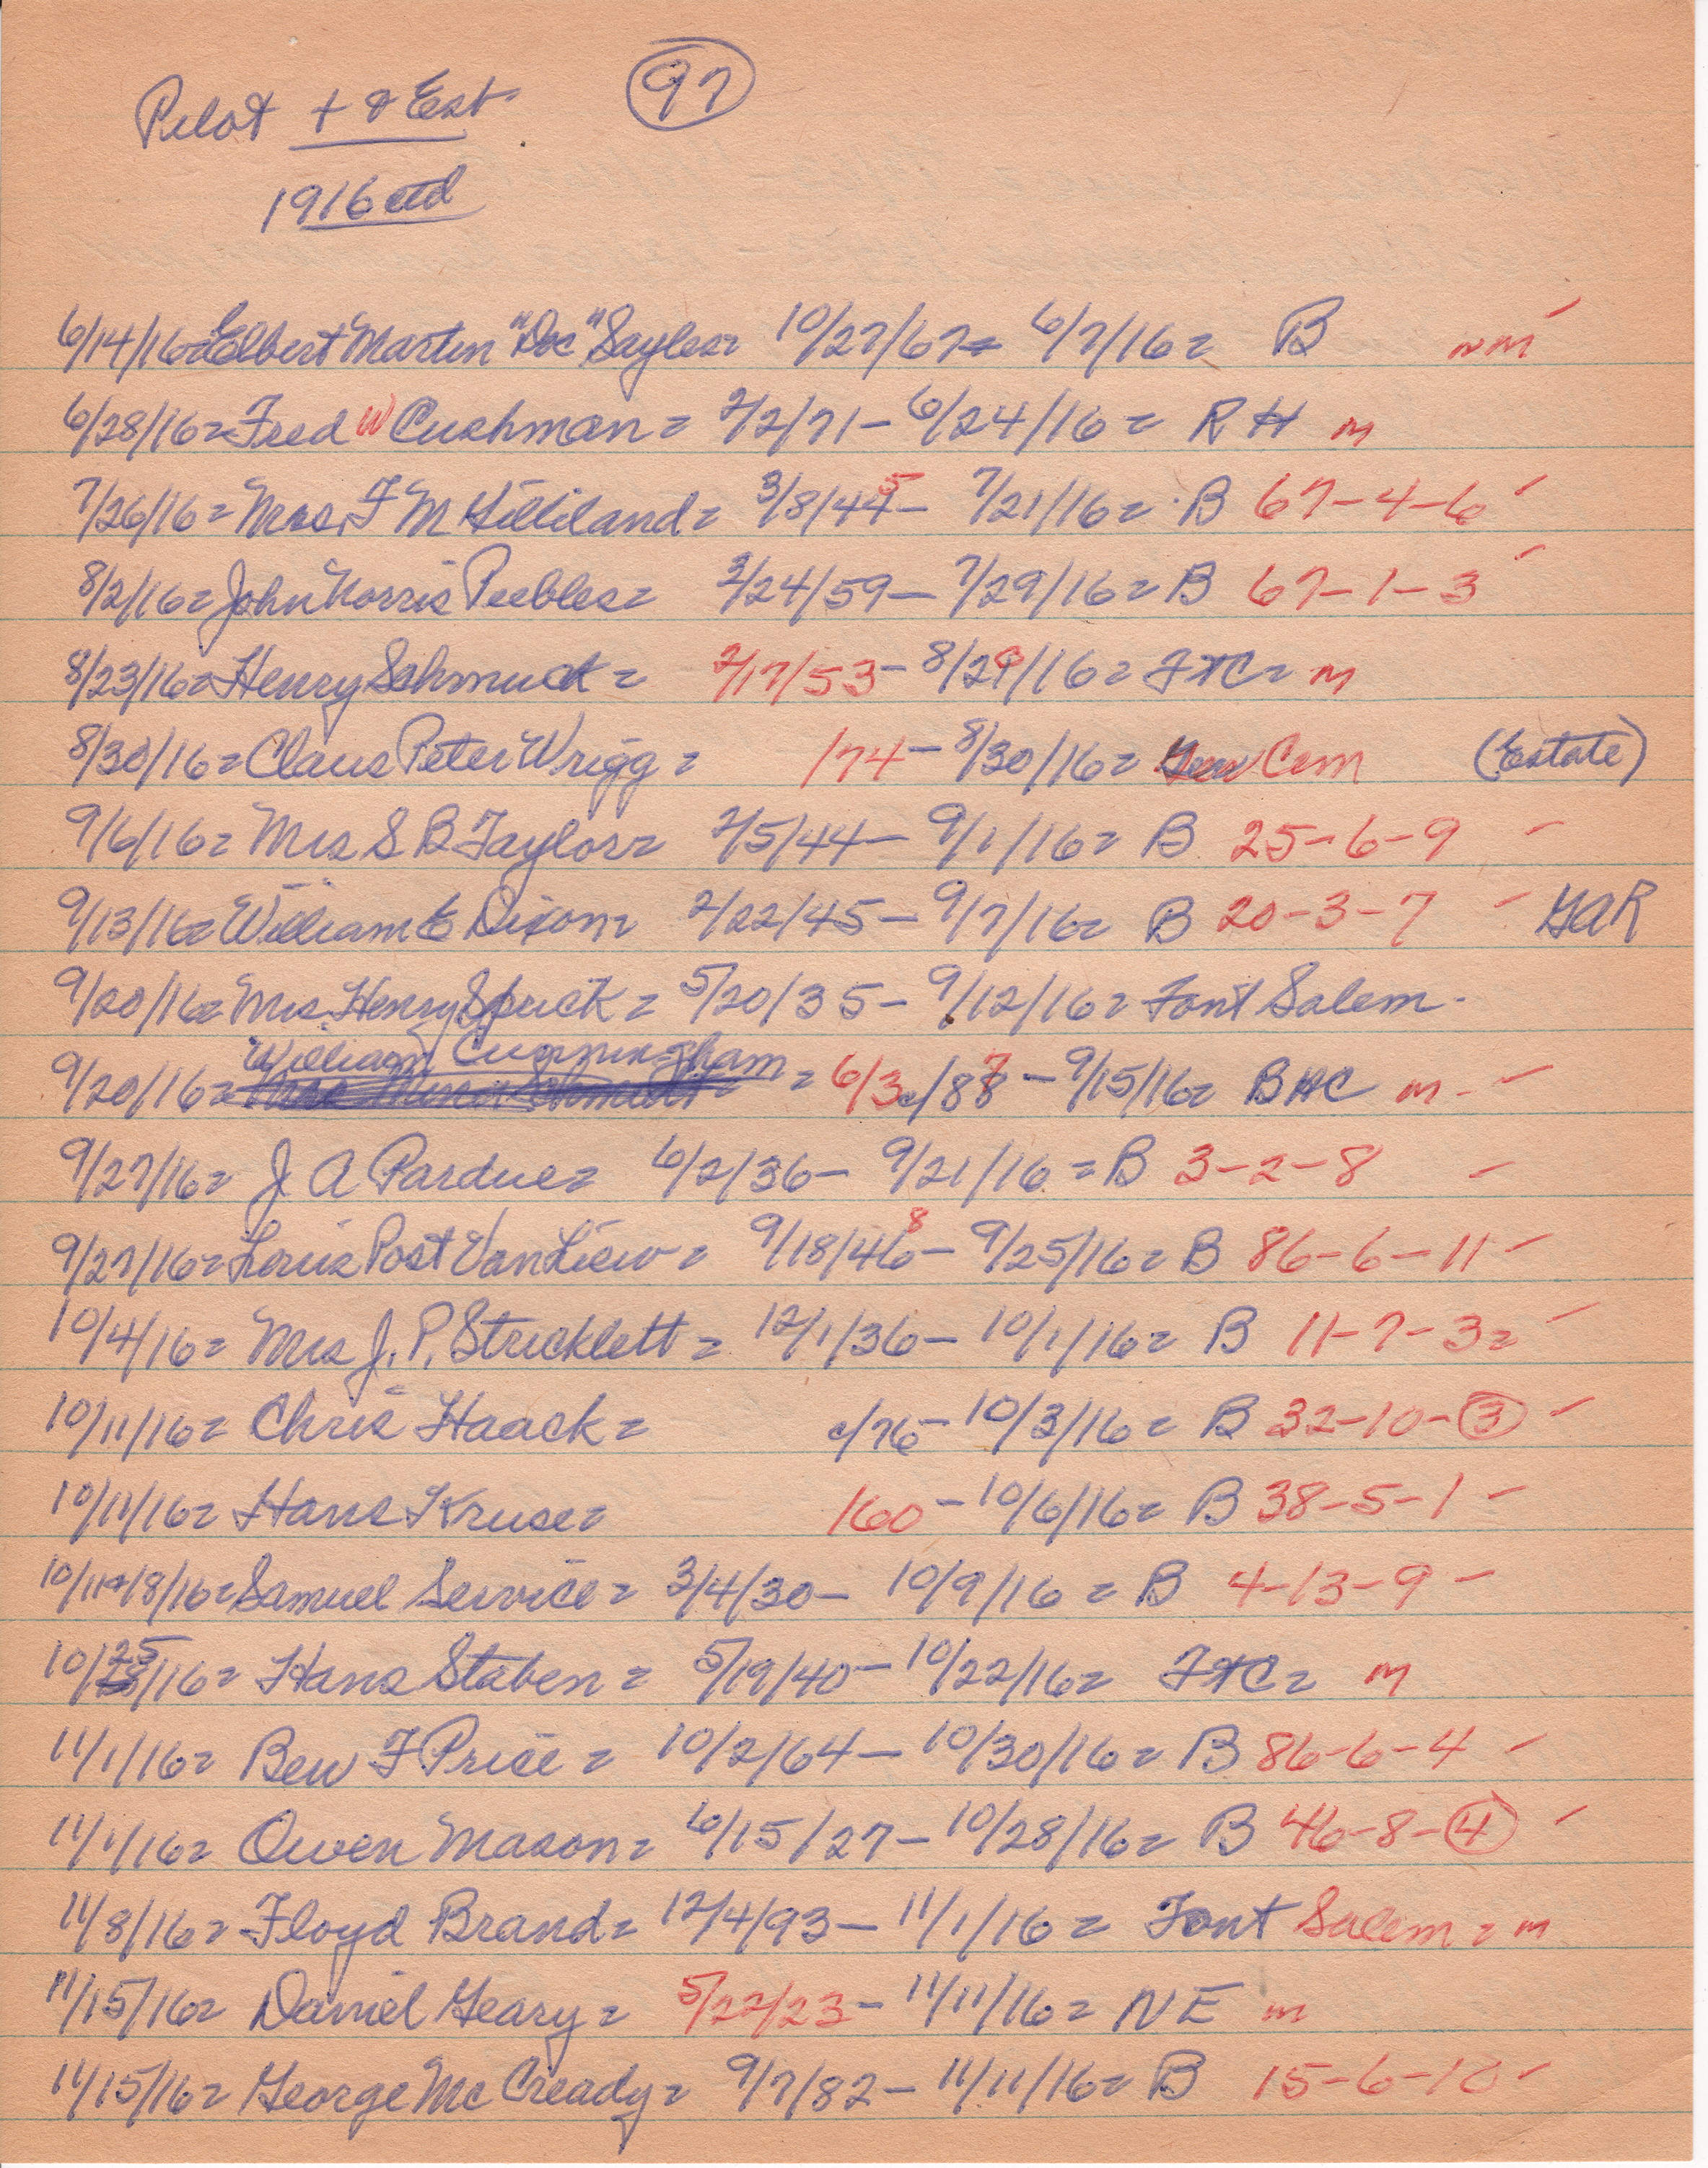 Pilot + & Est. 97
1916 ctd
6/14/16= Elbert Martin "Doc" Sayles= 10/27/67= 6/7/16= B nm
6/28/16= Fred W Cushman= 2/2/71- 6/24/16= R H m
7/26/16= Mrs. F M Gilliland= 3/8/44 5- 7/21/16= B 67-4-6
8/2/16= John Norris Peebles= 3/24/59- 7/29/16= B 67-1-3
8/23/16= Henry Schmuck= 2/17/53- 8/29/16= FTC= m
8/30/16= Claus Peter Wrigg= 174- 8/30/16= Cem (Estate)
9/6/16= Mrs S B Taylor= 2/5/44- 9/1/16= B 25-6-9
9/13/16= William E Dixon= 2/22/45- 9/7/16= B 20-3-7 GAR
9/20/16= Mrs. Henry Spuck= 5/20/35- 9/12/16= Font Salem-
William Cunningham
9/20/16= = 6/3c/88 7- 9/15/16= BHC m-
9/27/16= J A Pardue= 6/2/36- 9/21/16= B 3-2-8
9/27/16= Louis Post VanLiew= 9/18/46 8- 9/25/16= B 86-6-11
10/4/16= Mrs J. P. Stricklett= 12/1/36- 10/1/16= B 11-7-3=
10/11/16= Chris Haack= c/76- 10/3/16= B 32-10-3
10/11/16= Hans Kruse= 160- 10/6/16= B 38-5-1
10/11+18/16= Samuel Service= 3/4/30- 10/9/16= B 4-13-9
10/25/16= Hans Staben= 5/19/40- 10/22/16= FTC= m
11/1/16= Ben F Price= 10/2/64- 10/30/16= B 86-6-4
11/1/16= Owen Mason= 6/15/27- 10/28/16= B 46-8-4
11/8/16= Floyd Brand= 12/4/93- 11/1/16= Font Salem= m
11/15/16= Daniel Geary= 5/22/23- 11/11/16= N E m
11/15/16= George McCready= 9/7/82- 11/11/16= B 15-6-10